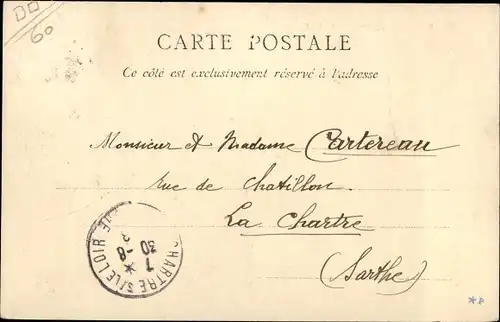 DD
60
CARTE POSTALE
Ce côté est exclusivement réservé à l'adresse
Monsieur et Madame Cartereau
rue de Chatillon
La Chartre
(Sarthe)
CHARTRE S/LE LOIR
7
30 -8
*